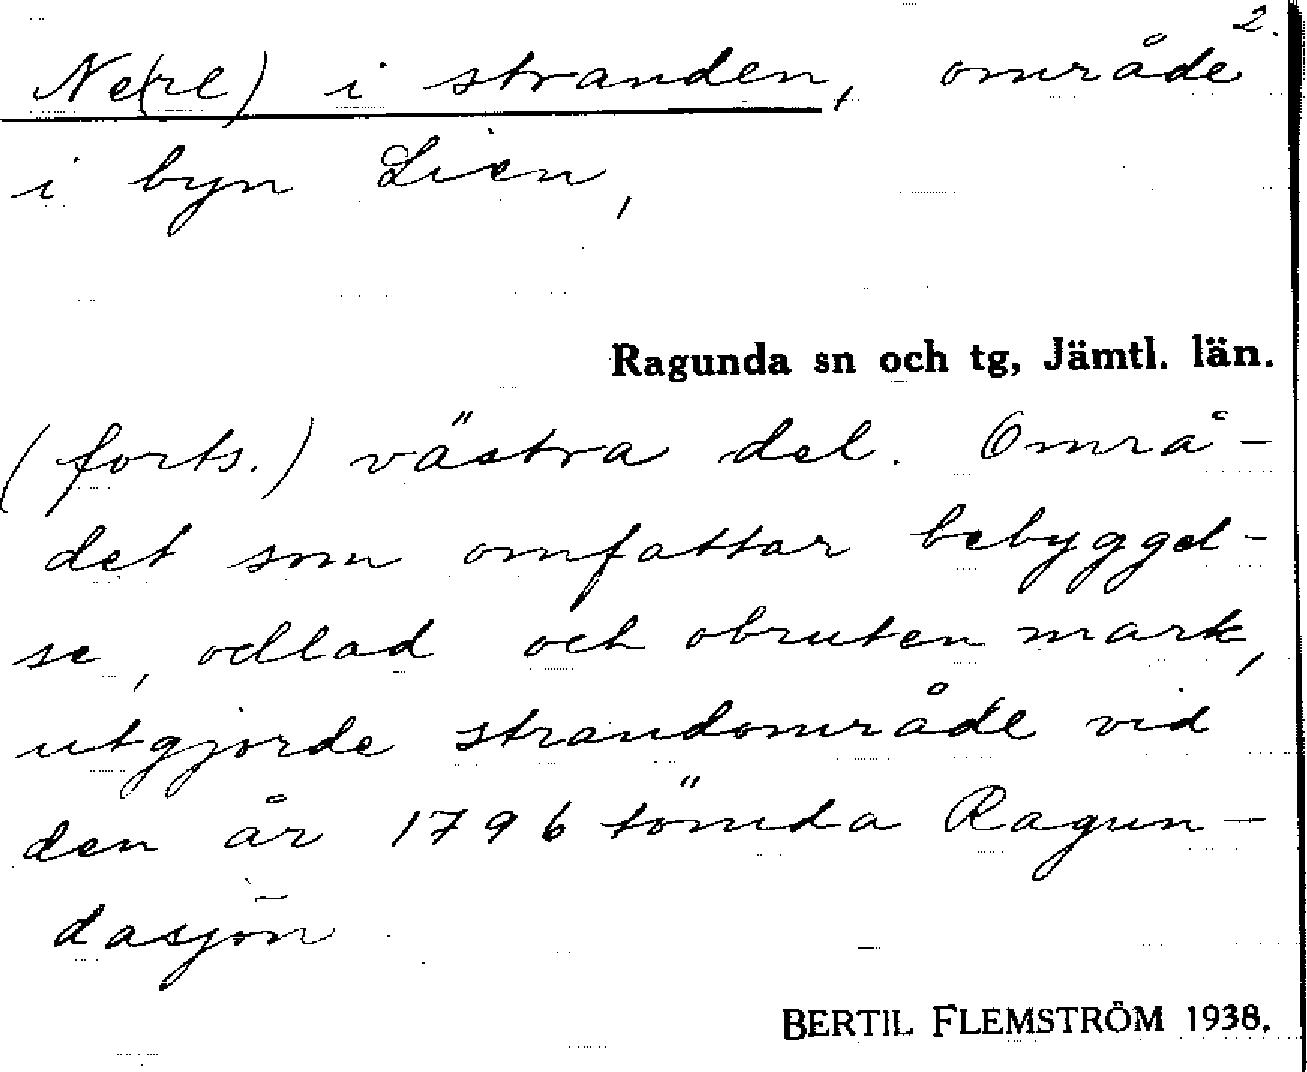 2.
Ne(re) i stranden, område
i byn Lien,
Ragunda sn och tg, Jämtl. län.
(forts.) västra del. Områ-
det som omfattar bebyggel-
se, odlad och obruten mark,
utgjorde strandområde vid
den år 1796 tömda Ragun-
dasjön.
BERTIL FLEMSTRÖM 1938.